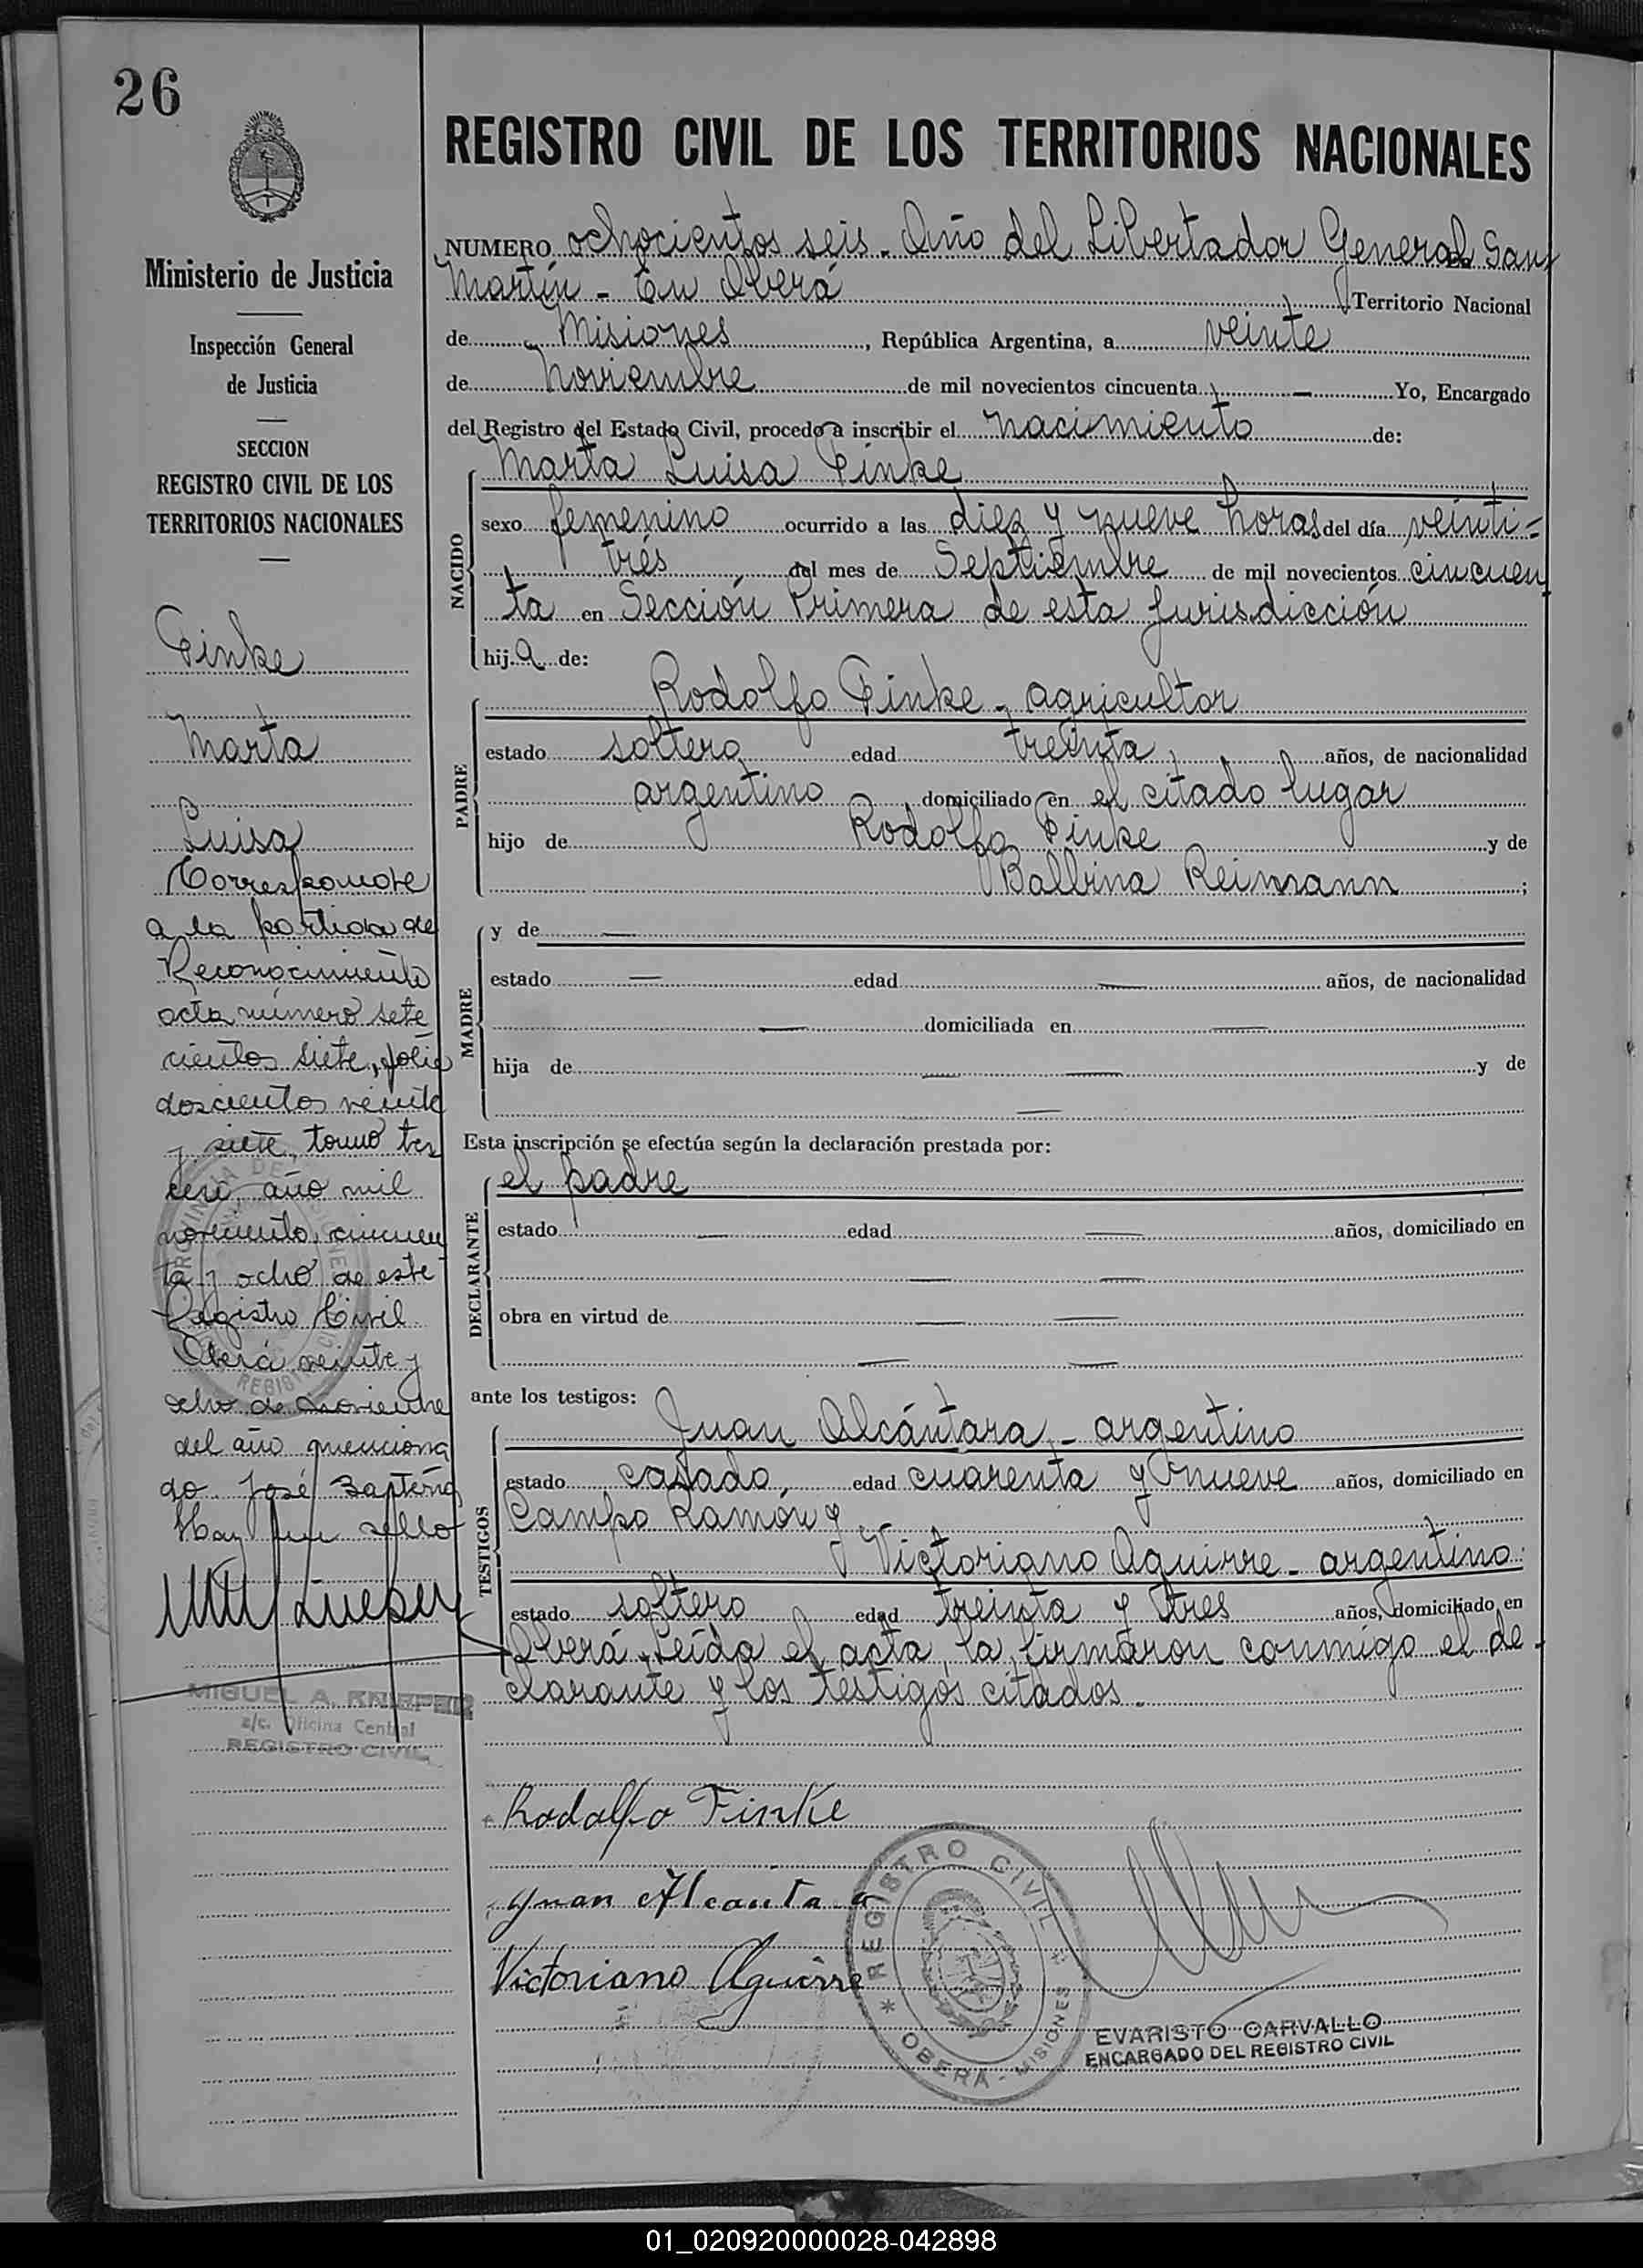 26
REGISTRO CIVIL DE LOS TERRITORIOS NACIONALES
Ministerio de Justicia
Inspección General
de Justicia
SECCION
REGISTRO CIVIL DE LOS
TERRITORIOS NACIONALES
Finke
Marta
Luisa
Corresponde
a la partida de
Reconocimiento
acta número sete
cientos siete, folio
doscientos veinte
y siete, tomo ter
cero, año mil
novecientos cincuen
ta y ocho de este
Registro Civil
Oberá veinte y
ocho de Noviembre
del año menciona
do. José
Hay un sello
MIGUEL A. KNIEPER
a/c. Oficina Central
REGISTRO CIVIL
NUMERO ochocientos seis - Año del Libertador General San
Martín - En Oberá Territorio Nacional
de Misiones, República Argentina, a veinte
de Noviembre de mil novecientos cincuenta, — Yo, Encargado
del Registro del Estado Civil, procedo a inscribir el nacimiento de:
NACIDO
Marta Luisa Finke
sexo femenino ocurrido a las diez y nueve horas del día veinti=
trés del mes de Septiembre de mil novecientos cincuen
ta en Sección Primera de esta jurisdicción
hija de:
PADRE
Rodolfo Finke - agricultor
estado soltero edad treinta años, de nacionalidad
argentino domiciliado en el citado lugar
hijo de Rodolfo Finke y de
Balbina Reimann ;
MADRE
y de —
estado — edad — años, de nacionalidad
— domiciliada en —
hija de — — y de
—
Esta inscripción se efectúa según la declaración prestada por:
DECLARANTE
el padre
estado — edad — años, domiciliado en
— —
obra en virtud de — —
— —
ante los testigos:
TESTIGOS
Juan Alcántara - argentino
estado casado, edad cuarenta y nueve años, domiciliado en
Campo Ramón y
Victoriano Aguirre - argentino
estado soltero edad treinta y tres años, domiciliado en
Oberá. Leída el acta, la firmaron conmigo el de-
clarante y los testigos citados.
Rodolfo Finke
Juan Alcanta a
Victoriano Aguirre
REGISTRO CIVIL
* OBERA - MISIONES *
EVARISTO CARVALLO
ENCARGADO DEL REGISTRO CIVIL
01_020920000028-042898